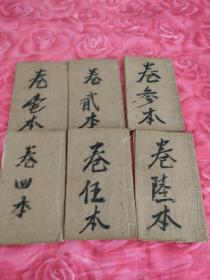 卷壹本
卷贰本
卷参本
卷四本
卷伍本
卷陸本